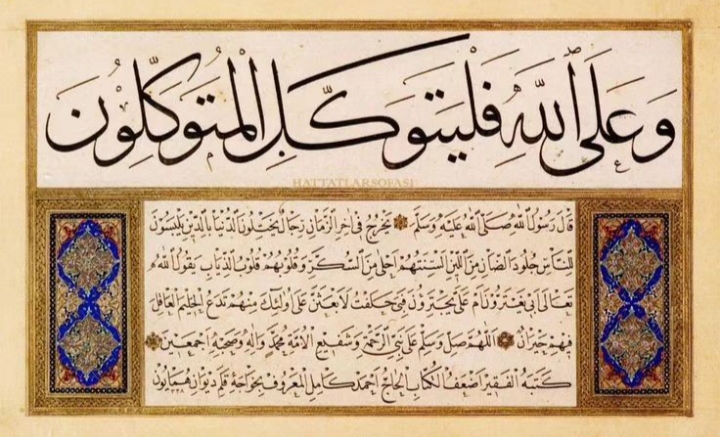 وَعَلَى ٱللّٰهِ فَلْيَتَوَكَّلِ الْمُتَوَكِّلُونَ
HATTATLARSOFASI
قَالَ رَسُولُ اللّٰهِ صَلَّى اللّٰهُ عَلَيْهِ وَسَلَّمَ يَخْرُجُ فِي اٰخِرِ الزَّمَانِ رِجَالٌ يَخْتِلُونَ الدُّنْيَا بِالدِّينِ يَلْبَسُونَ
لِلنَّاسِ جُلُودَ الضَّأْنِ مِنَ اللِّينِ اَلْسِنَتُهُمْ اَحْلٰى مِنَ السُّكَّرِ وَقُلُوبُهُمْ قُلُوبُ الذِّيَابِ يَقُولُ اللّٰهُ
تَعَالٰى اَبِي يَغْتَرُّونَ اَمْ عَلَيَّ يَجْتَرِؤُنَ فَبِي حَلَفْتُ لَاَبْعَثَنَّ عَلٰى اُولٰئِكَ مِنْهُمْ تَدَعُ الْحَلِيمَ الْعَاقِلَ
فِيهِمْ حَيْرَانَ اَللّٰهُمَّ صَلِّ وَسَلِّمْ عَلٰى نَبِيِّ الرَّحْمَةِ وَشَفِيعِ الْاُمَّةِ مُحَمَّدٍ وَاٰلِهِ وَصَحْبِهِ اَجْمَعِينَ
كَتَبَهُ الْفَقِيرُ اَضْعَفُ الْكُتَّابِ الْحَاجُّ اَحْمَدُ كَامِلُ الْمَعْرُوفُ بِخَواجَهِ قَلَمِ دِيوَانِ هُمَايُونْ